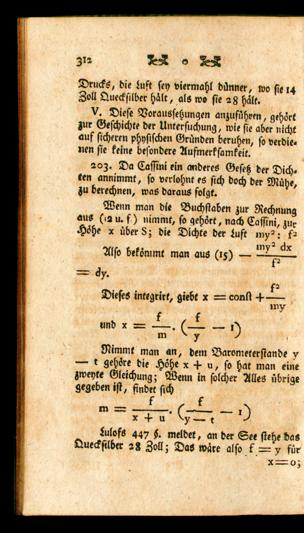 312
Drucks, die Luft sey viermahl dünner, wo sie 14
Zoll Quecksilber hält, als wo sie 28 hält.
V. Diese Voraussetzungen anzuführen, gehört
zur Geschichte der Untersuchung, wie sie aber nicht
auf sichern physischen Gründen beruhen, so verdie-
nen sie keine besondere Aufmerksamkeit.
203. Da Cassini ein anderes Gesetz der Dich-
ten annimmt, so verlohnt es sich doch der Mühe,
zu berechnen, was daraus folgt.
Wenn man die Buchstaben zur Rechnung
aus (12 u. f) nimmt, so gehört, nach Cassini, zur
Höhe x über S; die Dichte der Luft my²: f²
Also bekömmt man aus (15) — my² dx / f²
= dy.
Dieses integrirt, giebt x = const + f² / my
und x = f / m . (f / y — 1)
Nimmt man an, dem Barometerstande y
— t gehöre die Höhe x + u, so hat man eine
zweyte Gleichung; Wenn in solcher Alles übrige
gegeben ist, findet sich
m = f / x + u . (f / y — t — 1)
Lulofs 447 §. meldet, an der See stehe das
Quecksilber 28 Zoll; Das wäre also f = y für
x = 0;